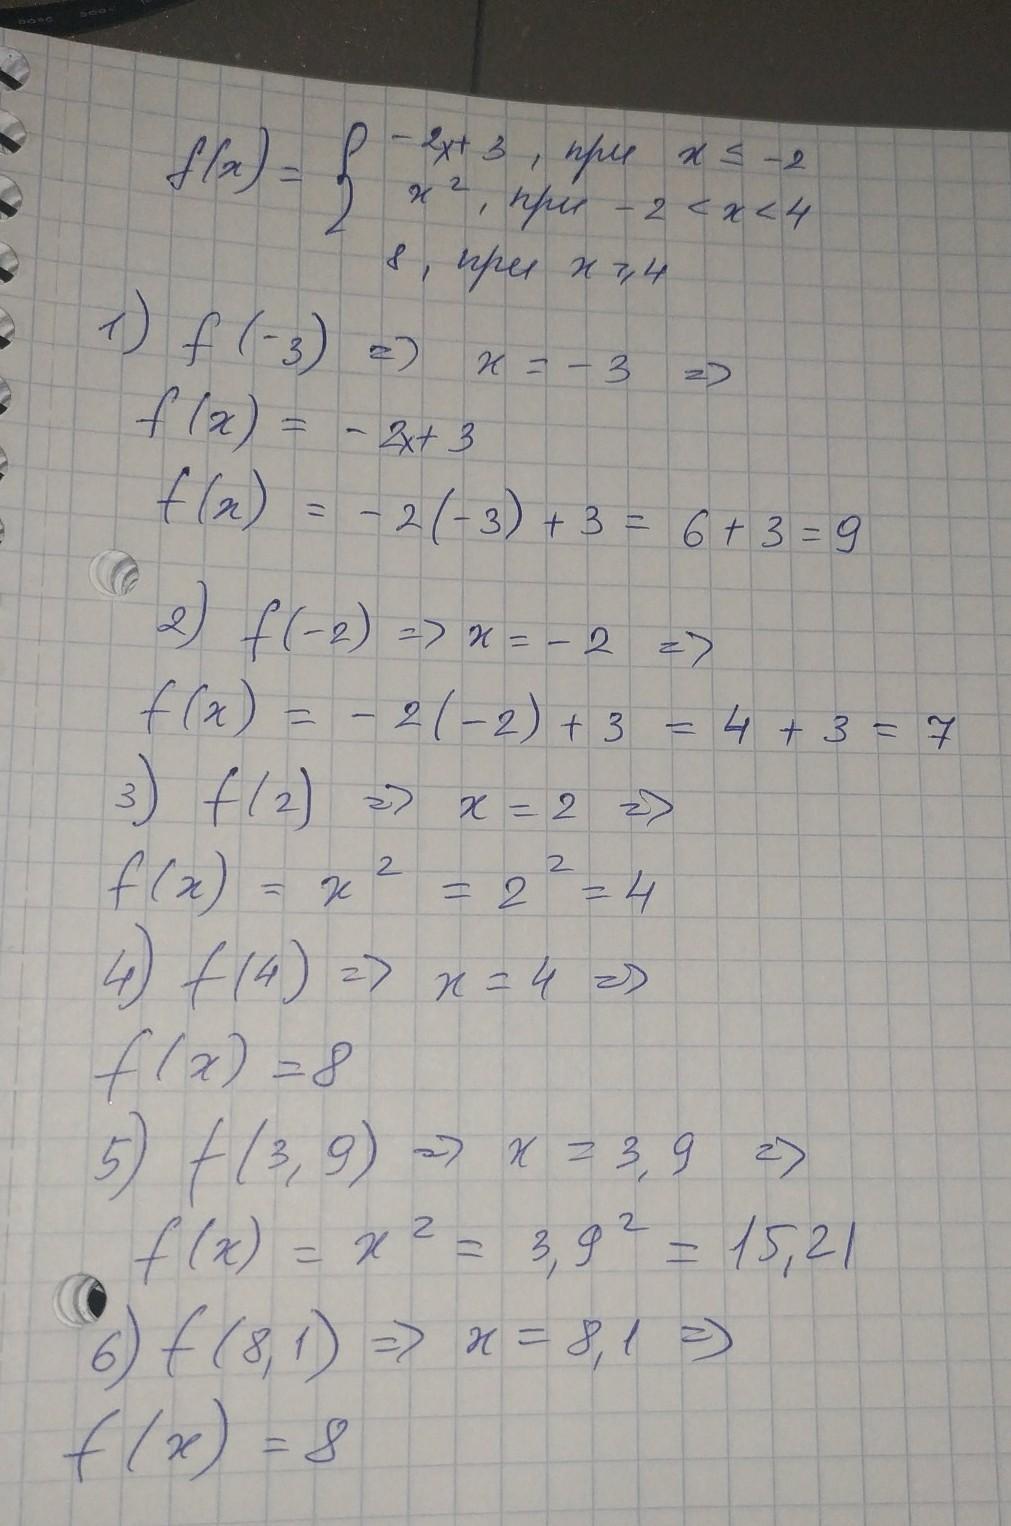 f(x) = { -2x+3, при x ≤ -2
x², при -2 < x < 4
8, при x ⩾ 4
1) f(-3) => x = -3 =>
f(x) = -2x+3
f(x) = -2(-3) + 3 = 6 + 3 = 9
2) f(-2) => x = -2 =>
f(x) = -2(-2) + 3 = 4 + 3 = 7
3) f(2) => x = 2 =>
f(x) = x² = 2² = 4
4) f(4) => x = 4 =>
f(x) = 8
5) f(3,9) => x = 3,9 =>
f(x) = x² = 3,9² = 15,21
6) f(8,1) => x = 8,1 =>
f(x) = 8